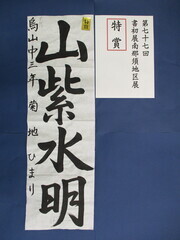 第七十七回
書初展南那須地区展
特賞
山紫水明
烏山中三年 菊地ひまり